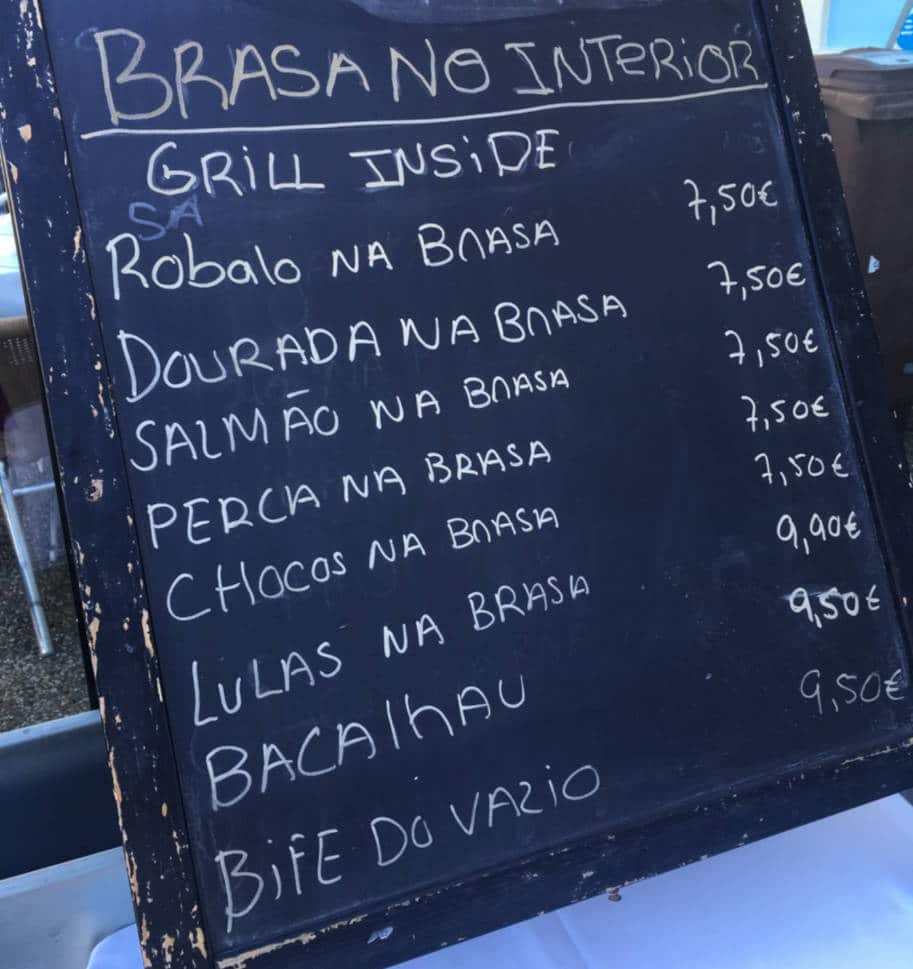 BRASA NO INTERIOR
GRILL INSIDE
SA
Robalo NA BRASA 7,50€
DOURADA NA BRASA 7,50€
SALMÃO NA BRASA 7,50€
PERCA NA BRASA 7,50€
CHOCOS NA BRASA 7,50€
LULAS NA BRASA 9,90€
BACAlhAU 9,50€
BIFE DO VAZIO 9,50€